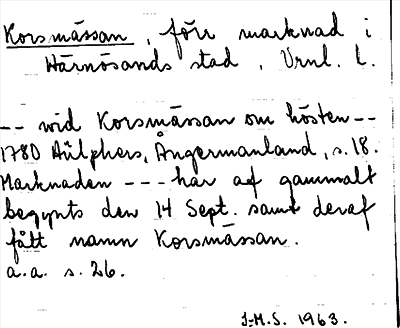 Korsmässan, förr marknad i
Härnösands stad, Urnl. L.
-- wid Korsmässan om hösten --
1780 Hülphers, Ångermanland, s. 18.
Marknaden --- har af gammalt
begynts den 14 Sept. samt deraf
fått namn Korsmässan.
a.a. s. 26.
J-M.S. 1963.